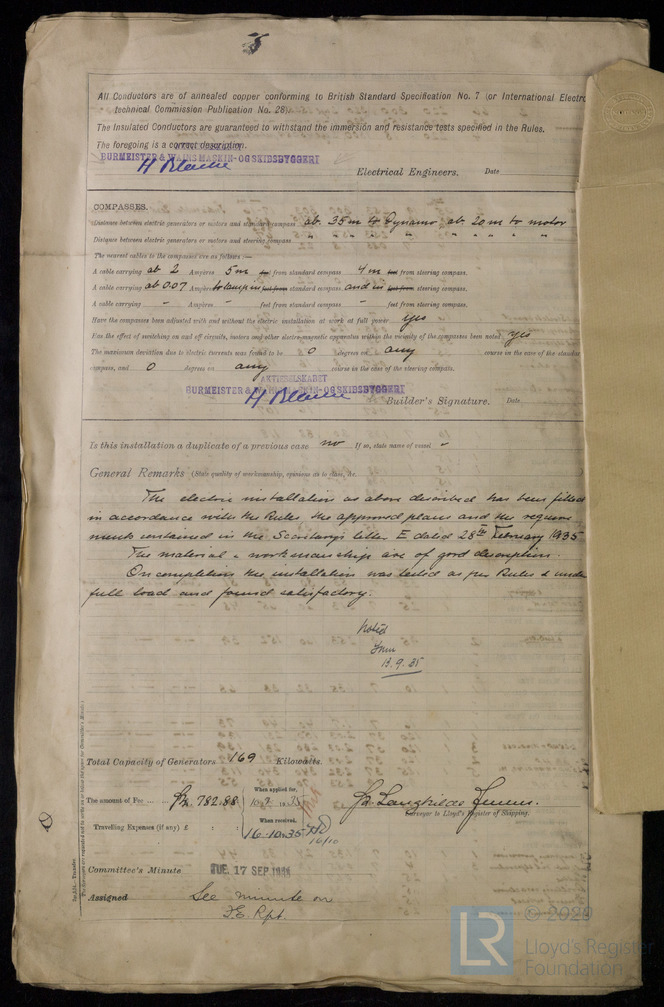 All Conductors are of annealed copper conforming to British Standard Specification No. 7 (or International Electro
technical Commission Publication No. 28).
The Insulated Conductors are guaranteed to withstand the immersion and resistance tests specified in the Rules.
The foregoing is a correct description.
BURMEISTER & WAINS MASKIN-OG SKIBSBYGGERI
Electrical Engineers. Date
COMPASSES.
Distance between electric generators or motors and standard compass ab. 35 m to Dynamo ab 20 m to motor
Distance between electric generators or motors and steering compass " " " " " " " "
The nearest cables to the compasses are as follows:—
A cable carrying ab 2 Ampères 5 m feet from standard compass 4 m feet from steering compass.
A cable carrying ab 0.07 Ampères to lamp in feet from standard compass and in feet from steering compass.
A cable carrying - Ampères - feet from standard compass - feet from steering compass.
Have the compasses been adjusted with and without the electric installation at work at full power yes
Has the effect of switching on and off circuits, motors and other electro-magnetic apparatus within the vicinity of the compasses been noted yes
The maximum deviation due to electric currents was found to be 0 degrees on any course in the case of the standard
compass, and 0 degrees on any course in the case of the steering compass.
AKTIESELSKABET
BURMEISTER & WAINS MASKIN-OG SKIBSBYGGERI
Builder's Signature. Date
Is this installation a duplicate of a previous case no If so, state name of vessel -
General Remarks (State quality of workmanship, opinions as to class, &c.
The electric installation as above described has been fitted
in accordance with the Rules the approved plans and the require
ments contained in the Secretary's letter E dated 28th February 1935
The material & workmanship are of good description.
On completion the installation was tested as per Rules & under
full load and found satisfactory.
Noted
13.9.35
Total Capacity of Generators 169 Kilowatts.
The amount of Fee ... ... Kr. 782.88
When applied for,
Travelling Expenses (if any) £ : :
When received,
16.10.35
16/10
Surveyor to Lloyd's Register of Shipping.
Committee's Minute TUE. 17 SEP 193
Assigned See minute on
F.E. Rpt.
© 2020
LR
Lloyd's Register
Foundation